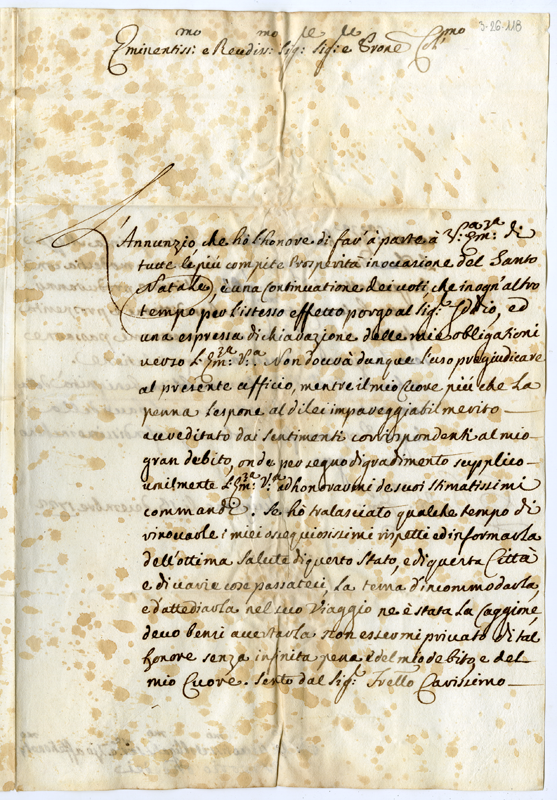 3-26-118
Eminentiss:mo e Reudiss:mo Sig:re Sig:re e Prone Col:mo
L'Annunzio che hò l'honore di far' à parte à V:ra Em:za di
tutte le più compite Prosperità in occasione del Santo
Natale, è una continuatione dei voti, che in ogn'altro
tempo per l'istesso effetto porgo al Sig:re Iddio, ed
una espressa dichiaratione delle mie obligationi
verso l'Em:za V:ra. Non dovrà dunque l'uso pregiudicare
al presente ufficio, mentre il mio Cuore più che la
penna l'espone al di lei impareggiabil merito
accreditato dai sentimenti corrispondenti al mio
gran debito, onde per segno di gradimento supplico
umilmente l'Em:za V:ra ad honorarmi de suoi stimatissimi
commandi. Se hò tralasciato qualche tempo di
rinovarle i miei ossequiosissimi rispetti ed informarla
dell'ottima Salute di questo Stato, e di questa Città
e di varie cose passateci, la tema d'incommodarla,
e d'attediarla nel suo Viaggio ne è stata la Caggione,
devo bensi accertarla non essermi privato di tal
honore senza infinita pena, e del mio debito, e del
mio Cuore. Sento dal Sig:r Frello Carissimo